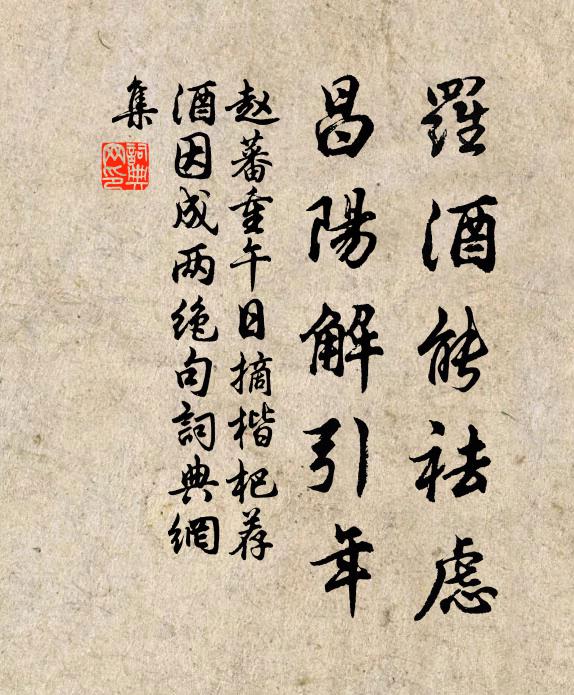 羅酒能祛慮
昌陽解引年
赵蕃重午日摘楷杷荐
酒因成两绝句詞典網
集
詞典
网印